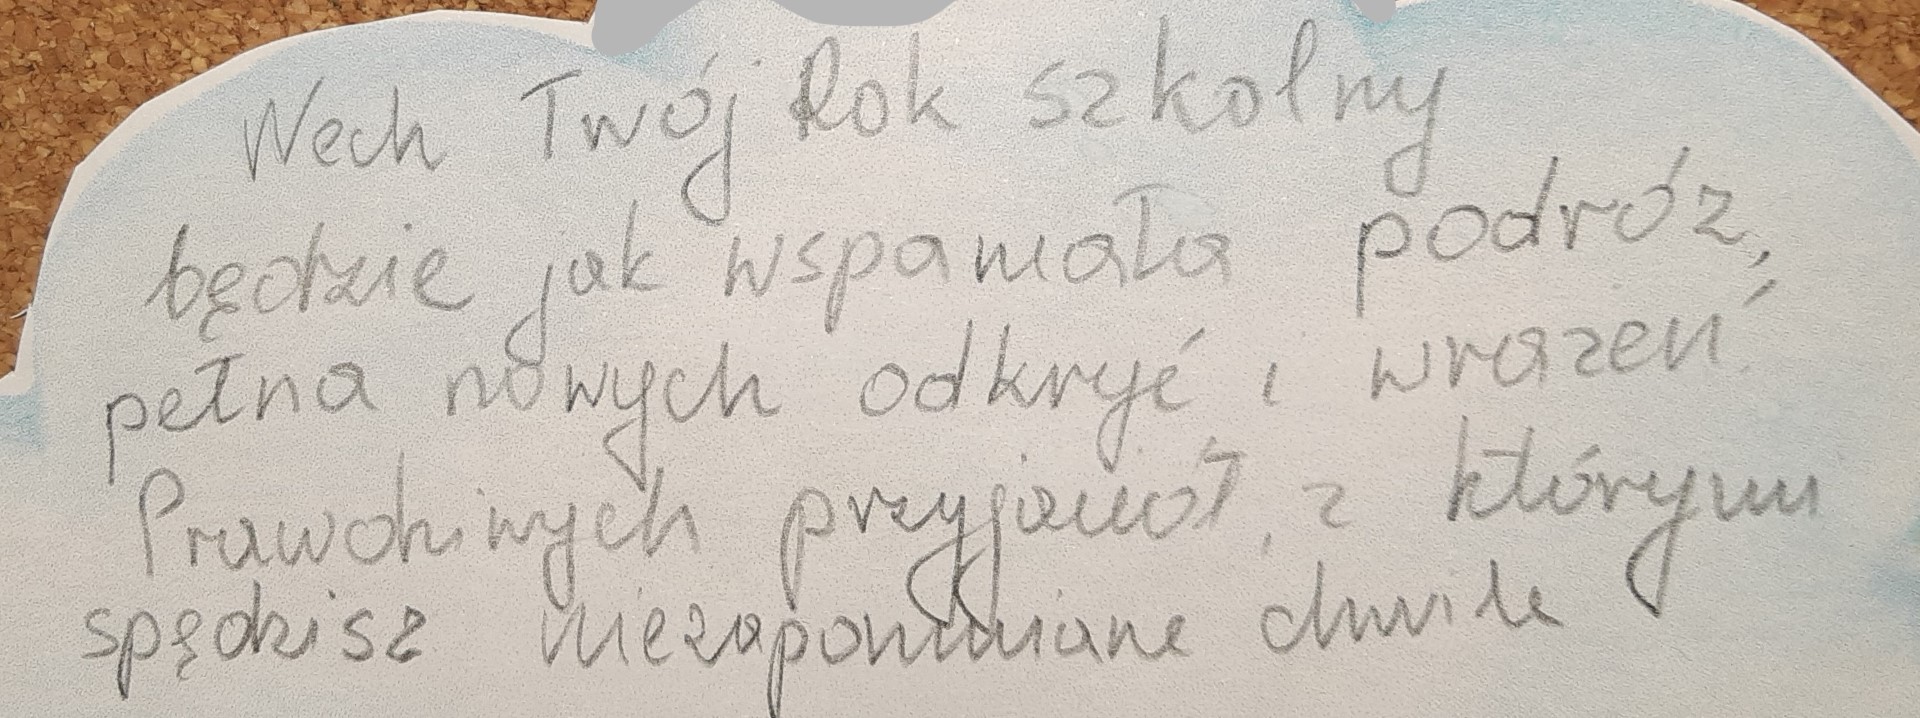 Niech Twój Rok szkolny
będzie jak wspaniała podróż,
pełna nowych odkryć i wrażeń
Prawdziwych przyjaciół, z którymi
spędzisz niezapomniane chwile